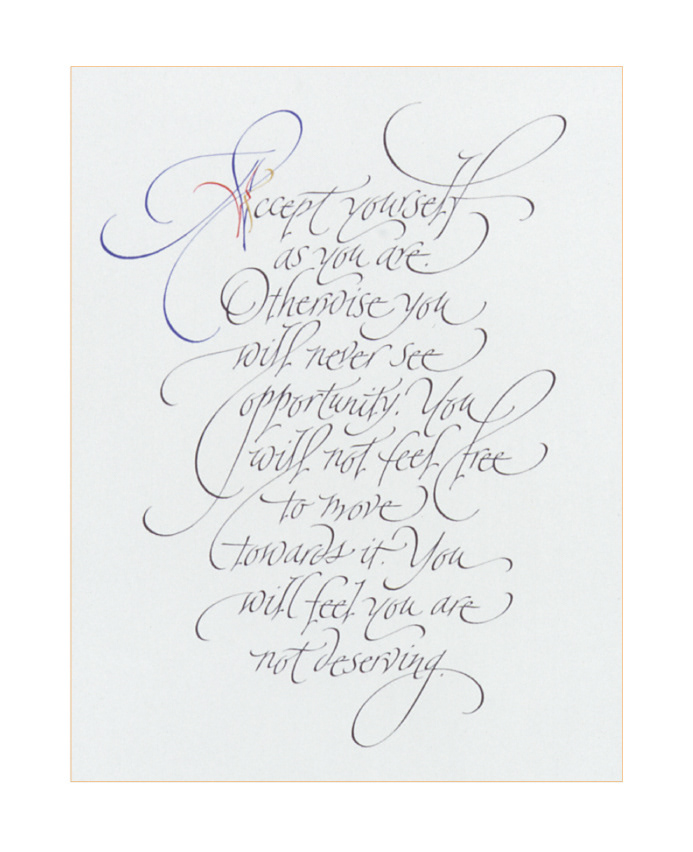 Accept yourself
as you are.
Otherwise you
will never see
opportunity. You
will not feel free
to move
towards it. You
will feel you are
not deserving.